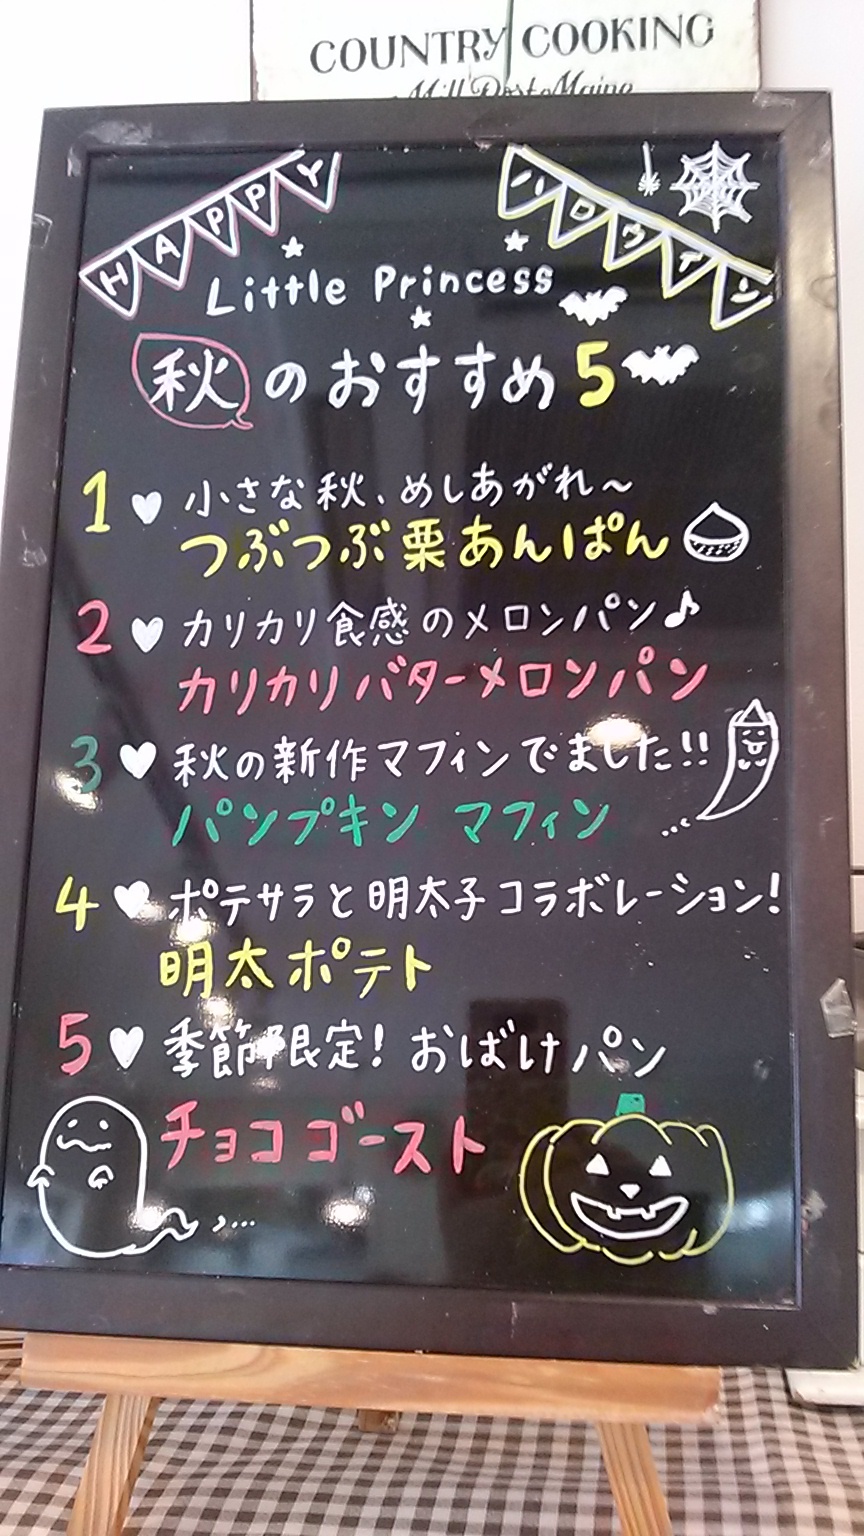 COUNTRY COOKING
HAPPY
ハロウィン
Little Princess
秋のおすすめ5
1 ♥ 小さな秋、めしあがれ〜
つぶつぶ栗あんぱん
2 ♥ カリカリ食感のメロンパン♪
カリカリバターメロンパン
3 ♥ 秋の新作マフィンでました!!
パンプキン マフィン
4 ♥ ポテサラと明太子コラボレーション!
明太ポテト
5 ♥ 季節限定! おばけパン
チョコゴースト